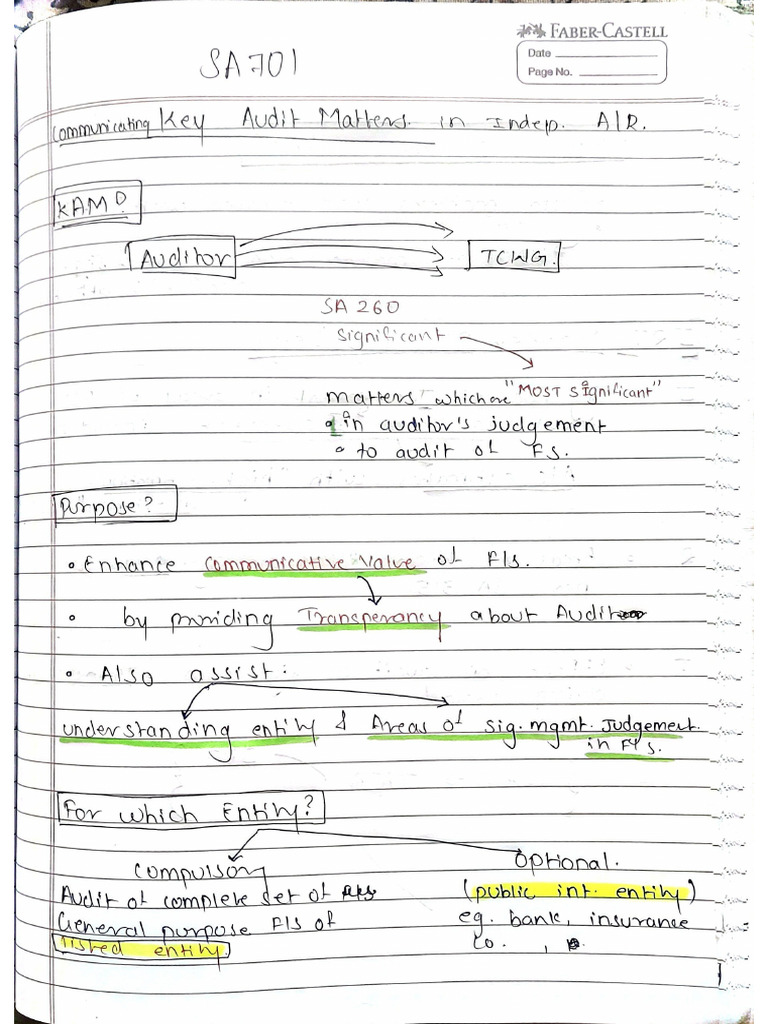 FABER-CASTELL
Date
Page No.
SA 701
Communicating Key Audit Matters in Indep. A/R.
KAM?
Auditor
TCWG.
SA 260
significant
matters which are "MOST significant"
in auditor's judgement
to audit of FS.
Purpose?
• Enhance Communicative Value of F/s.
by providing Transperancy about Audit
• Also assist.
understanding entity & Areas of sig. mgmt. Judgement
in F/s.
For which Entity?
Compulsory
Optional.
Audit of complete set of
(public int. entity)
General purpose F/s of
eg. bank, insurance
listed entity.
co. ,